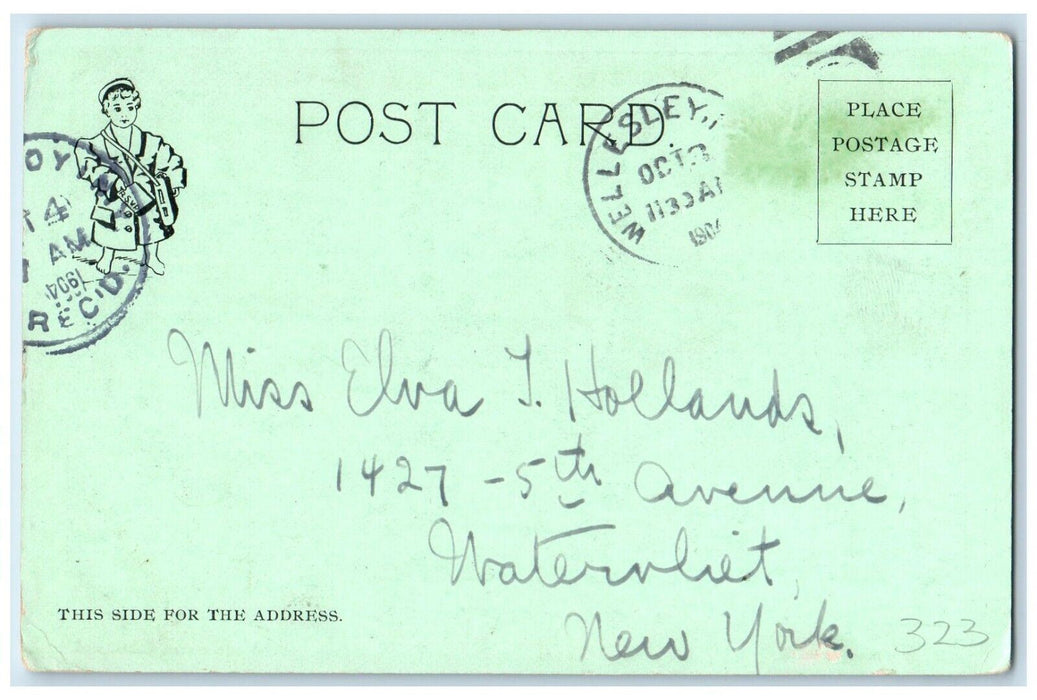 POST CARD
WELLESLEY,
OCT 3
1130 AM
1904
PLACE
POSTAGE
STAMP
HERE
OY
T 4
AM
1904
REC'D.
Miss Elva T. Hollands,
1427 - 5th Avenue,
Watervliet,
New York.
THIS SIDE FOR THE ADDRESS.
323